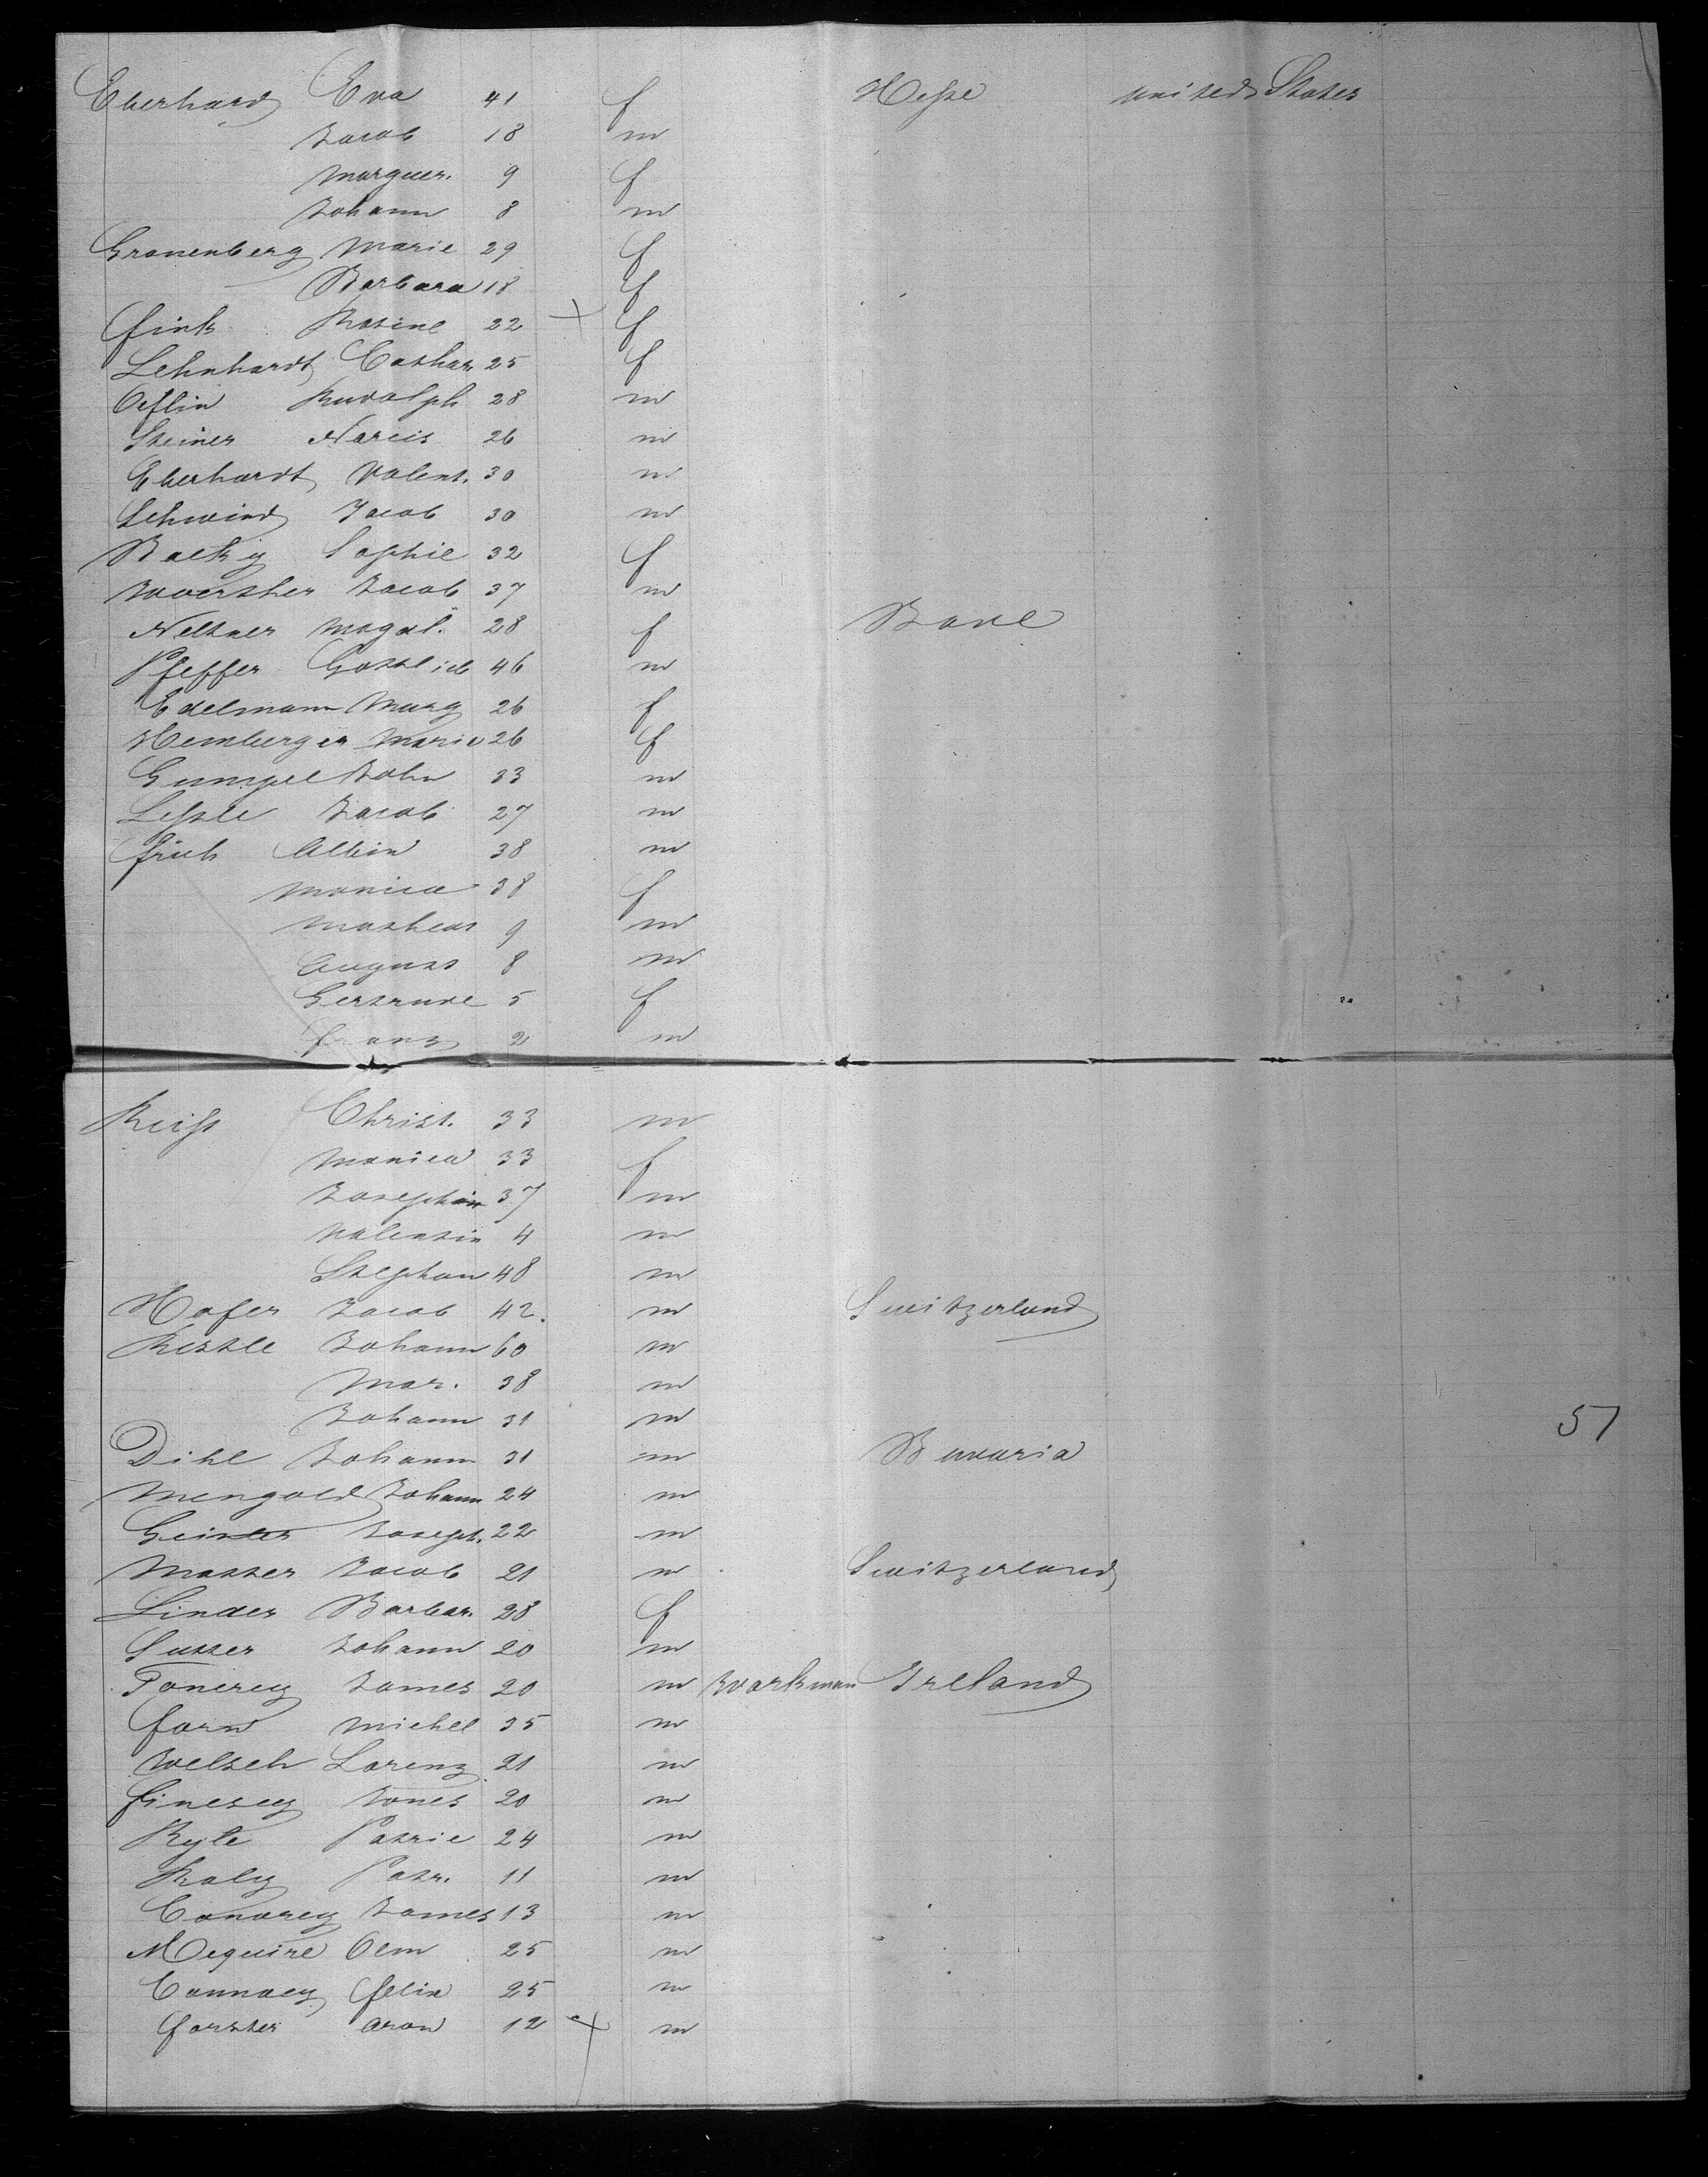 Eberhard Eva 41 f Hesse united States
Jacob 18 m
Marguer. 9 f
Johann 8 m
Gronenberg Marie 29 f
Barbara 18 f
Fink Rosine 22 + f
Lehnhardt Cathar. 25 f
Oeflin Rudolph 28 m
Steiner Narcis 26 m
Eberhardt Valent. 30 m
Schwind Jacob 30 m
Sophie 32 f
Jacob 37 m
Neltner Magdl. 28 f Bade
Pfeffer Gottlieb 46 m
Edelmann Marg 26 f
Hemberger Marie 26 f
Gumpel John 33 m
Jacob 27 m
Früh Albin 38 m
Monica 38 f
Matheas 9 m
August 8 m
Gertrude 5 f
Franz 2 m
Reiss Christ. 33 m
Monica 33 f
Josephin 37 m
Valentin 4 m
Stephan 48 m
Hofer Jacob 42. m Switzerland
Johann 60 m
Mar. 38 m
Johann 31 m
57
Dihl Johann 31 m Bavaria
Mengold Johann 24 m
Joseph. 22 m
Jacob 21 m Switzerland
Linder Barbar. 28 f
Sutter Johann 20 m
James 20 m Workman Ireland
Michel 35 m
Welsch Lorenz 21 m
20 m
Patric 24 m
Patr. 11 m
James 13 m
Mcguire 25 m
Felix 25 m
Forster Aron 12 + m